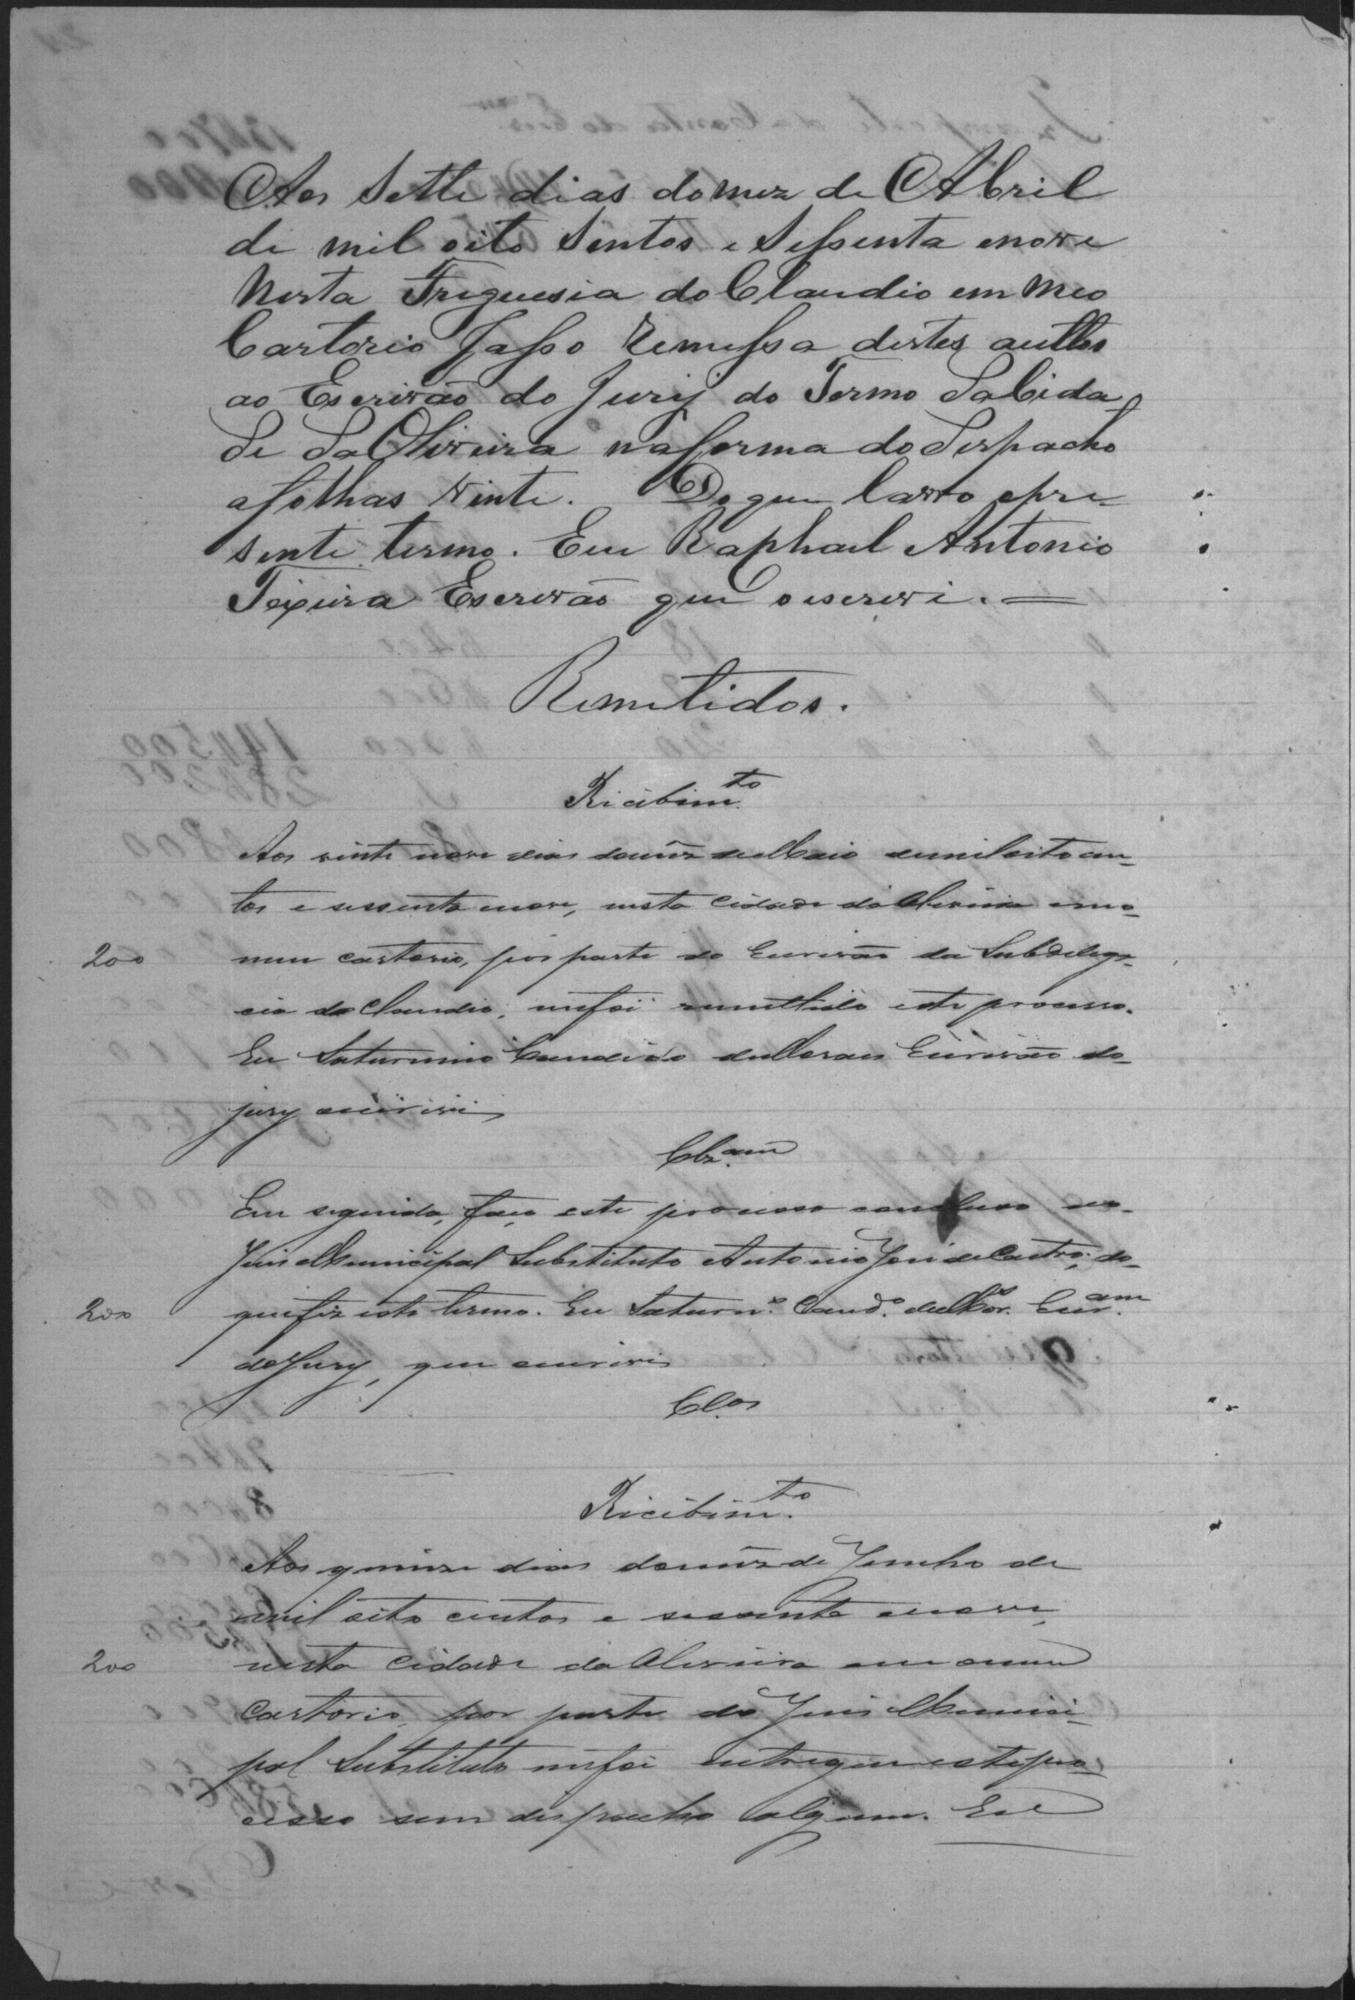 Aos Sette dias do mez de Abril
de mil oito Sintos e Sessenta enove
Nesta Freguesia do Claudio em meo
Cartorio Fasso Remessa destes auttos
ao Escrivão do Jury do Termo da Cida
de da Oliveira na forma do Despacho
afolhas vinte. Do que Lavro opre-
sente termo. Eu Raphael Antonio
Teixeira Escrivão que o escrevi. =
Remetidos.
Recebim.to
Aos vinte nove dias do mêz de Maio de mil oito cen-
tos e sessenta e nove, nesta cidade da Oliveira em o
200
meu cartorio, por parte do Escrivão da Subdelega-
cia do Claudio, me foi remettido este processo.
Eu Saturnino Candido de Moraes Escrivão do
jury escrevi
Clz.am
Em seguida, faço este processo concluso ao
Juis Municipal Substituto Antonio José de Castro, do
200
que fiz este termo. Eu Saturn.o Cand.o de Mor.s Escr.am
do Jury, que escrevi
Cl.os
Recebim.to
Aos quinze dias do mêz de Junho de
mil oito centos e sessenta e nove,
200
nesta cidade da Oliveira em o meu
cartorio, por parte do Juis Munici-
pal Substituto me foi entregue este pro-
cesso sem despacho algum. Eu